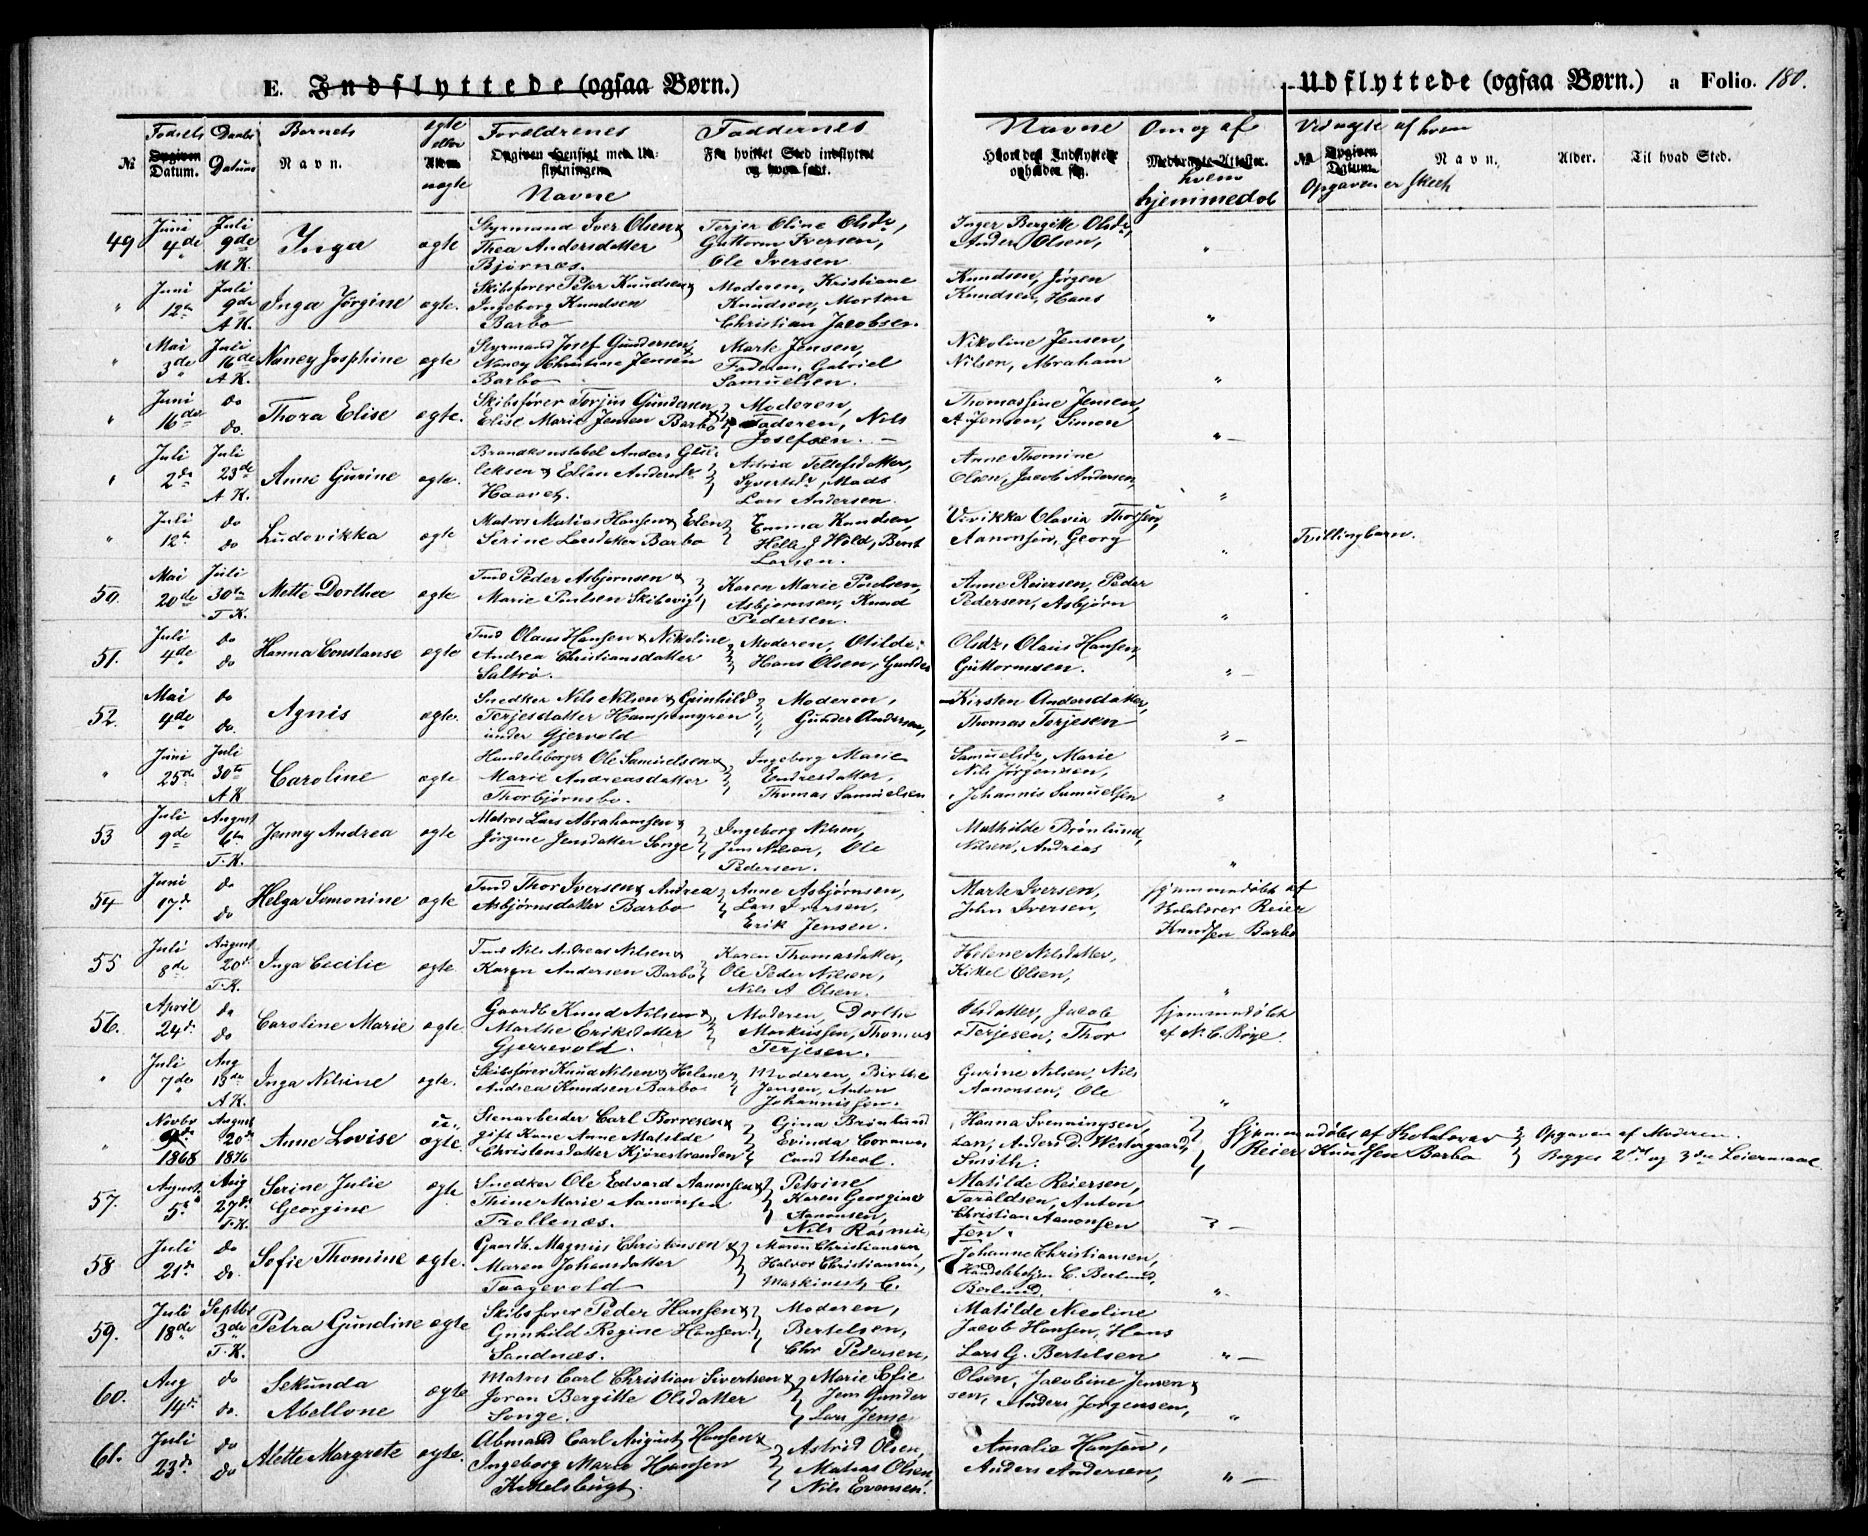 E. Indflyttede (ogsaa Børn.)
Udflyttede (ogsaa Børn.) a Folio. 180.
Fødsels Daabs Barnets ægte Forældrenes Faddernes Navne Om og af Ved ægte af hvem
№ Opgiven Datum. Datum Navn. eller uægte Opgiven Hensigt med Indflytningen. Navne Fra hvilket Sted indflyttet og hvor født. Hvor den Indflyttede opholder sig. Medbragte Attester. hvem hjemmedøb № Opgiven Datum. Navn. Alder. Til hvad Sted.
Opgaven er skeet
49 Juni Juli Styrmand Iver Olsen & Terjer Oline Olsdr, Inger Bergitte Olsdr,
4de 9de Inga ægte Thea Andersdatter Guttorm Iversen, Anders Olsen, "
M K. Bjørnæs. Ole Iversen
" Juni Juli Skibsfører Peter Knudsen & Moderen, Kristiane Knudsen, Jørgen
12te 9de Inga Jørgine ægte. Ingeborg Knudsen Knudsen, Morten Knudsen, Hans
A K. Barbo Christian Jacobsen. "
" Mai Juli Styrmand Josef Gundersen & Marte Jensen, Nikoline Jensen,
3de 16de Nancy Josphine ægte Nancy Christine Jensen Faderen, Gabriel Nilsen, Abraham
A K. Barbo Samuelsen. "
" Juni do Skibsfører Torjus Gundersen & Moderen, Thomassine Jensen,
16de do. Thora Elise ægte. Elise Marie Jensen Barbo Faderen, Nils A. Jensen, Simon
Josefsen. — " —
" Juli Juli Brandkonstabel Anders Gul- Astrid Tellefsdatter, Anne Thomine
2de 23de Anne Gurine ægte. leksen & Ellen Andersdr Syvertsdr, Mads Olsen, Jacob Andersen,
A K. Haavet. Lars Andersen. "
" Juli do Matros Matias Hansen & Elen Emma Knudsen, Vivikka Olavia Thorsen,
12te do Ludovikka ægte Serine Larsdatter Barbo Helle J Hold, Bernt Aanonsen, Georg " Tvillingbarn.
Larsen.
50. Mai Juli Tmd Peder Asbjørnsen & Karen Marie Paulsen, Anne Reiersen, Peder
20de 30te Mette Dorthea ægte Marie Paulsen Skibsvig Asbjørnsen, Knud Pedersen, Asbjørn
T K. Pedersen. "
51. Juli do Tmd Olaus Hansen & Nikoline Moderen, Otilde Olsdr, Olaus Hansen,
4de do Hanna Constanse ægte Andrea Christiansdatter Hans Olsen, Gunder Guttormsen.
Saltrø. " —
52. Mai do Snedker Nils Nilsen & Gunhild Moderen, Kirsten Andersdatter,
4de do. Agnis ægte. Terjesdatter Gunder Andersen, Thomas Terjesen
under Gjervold " —
" Juni Juli Handelsborger Ole Samuelsen & Ingeborg Marie Samuelsdr, Marie
25de 30te Caroline ægte Marie Andreasdatter Endresdatter, Nils Jørgensen,
A K Thorbjørnsbo. Thomas Samuelsen Johannis Samuelsen "
53 Juli August Matros Lars Abrahamsen & Ingeborg Nilsen, Mathilde Brønlund,
9de 6te Jenny Andrea ægte Jørgine Jensdatter Songe Jens Nilsen, Ole Nilsen, Andreas
T. K. Pedersen. "
54 Juni do Tmd Thor Iversen & Andrea Anne Asbjørnsen, Marte Iversen, hjemmedøbt af
17de do Helga Semonine ægte Asbjørnsdatter Barbo Lars Iversen, John Iversen, Skolelærer Reier
Erik Jensen. Knudsen Barbo
55 Juli August Tmd Nils Andreas Nilsen & Karen Thomasdatter, Helene Nilsdatter,
8de 20de Inga Cecilie ægte Karen Andersen Barbo Ole Peder Nilsen, Kittel Olsen,
T. K. Nils A Olsen. "
56. April do Gaardb Knud Nilsen & Moderen, Dorthe Olsdatter, Jacob hjemmedøbt
24de do Caroline Marie ægte. Marthe Eriksdatter Markussen, Thomas Terjesen, Thor af N. C. Bøye.
Gjerrevold. Terjesen.
" Juli Aug Skibsfører Knud Nilsen & Helene Moderen, Birthe Gurine Nilsen, Nils
7de 13de Inga Nilsine ægte. Andrea Knudsen Barbo Jensen, Anton Aanonsen, Ole
A K. Johannissen. "
" Novbr August u- Stenarbeider Carl Borresen & Gina Brønlund Hanna Svenningsen, hjemmedøbt af Skolelærer Opgaven af Moderen.
20de Anne Lovise ægte gift Kone Anne Matilde Evinda Anders D. Westergaard, Reier Knudsen Barbo Begges 2det og 3die Leiermaal
1868 1876 Christensdatter Kjørestranden Cand theol. Smith.
57. August Aug Serine Julie ægte Snedker Ole Edvard Aanonsen & Petrine Matilde Reiersen,
5te 27de Georgine Thine Marie Aanonsen Karen Georgine Taraldsen, Anton
T. K. Trollenæs. Aanonsen, Christian Aanonsen " —
Nils Rasmus- sen.
58 Juli do Gaardb. Magnus Christensen & Maren Christiansen, Johanne Christiansen,
21de do. Sofie Thomine ægte. Maren Johansdatter Halvor Christiansen, Handelsbetjen C. Berlund,
Taagevold Maskinist C. Berlund. "
59. Juli Septbr Skibsfører Peder Hansen & Moderen, Matilde Nicoline
18de 3de Petra Gundine ægte Gunhild Regine Hansen Bertelsen, Jacob Hansen, Hans
T. K. Sandnæs. Chr Pedersen, Lars G. Bertelsen " —
60. Aug do Sekunda Matros Carl Christian Sivertsen & Marie Sofie Olsen, Jacobine Jensen &
14de do. Abellone ægte Joran Bergitte Olsdatter Jens Gunder- sen, Anders Jørgensen,
Songe. Lars Jense "
61. Juli do Abmand Carl August Hansen & Astrid Olsen, Amalie Hansen,
23de do Alette Margrete ægte. Ingeborg Marie Hansen Matias Olsen, Anders Andersen,
Kittelsbugt. Nils Evensen. " —